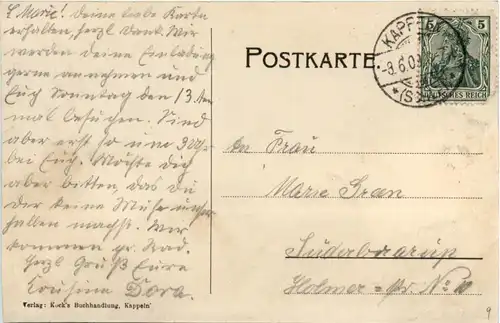 L. Marie! Deine liebe Karte
erhalten, herzl Dank. Wir
werden deine Einladung
gerne annehmen und
Euch Sonntag den 13.
mal besuchen. Sind
aber erst so um 3 Uhr
bei Euch. Möchte dich
aber bitten, das du
dir keine Mühe
machst. Wir
kommen pr. Rad.
Herzl Gruß Eure
Kousine Dora.
Verlag: Kock's Buchhandlung, Kappeln
POSTKARTE
KAPPE
-9.6.09
*(S
5 5
DEUTSCHES REICH
An Frau
Marie
Süderbrarup
Holmer-
9